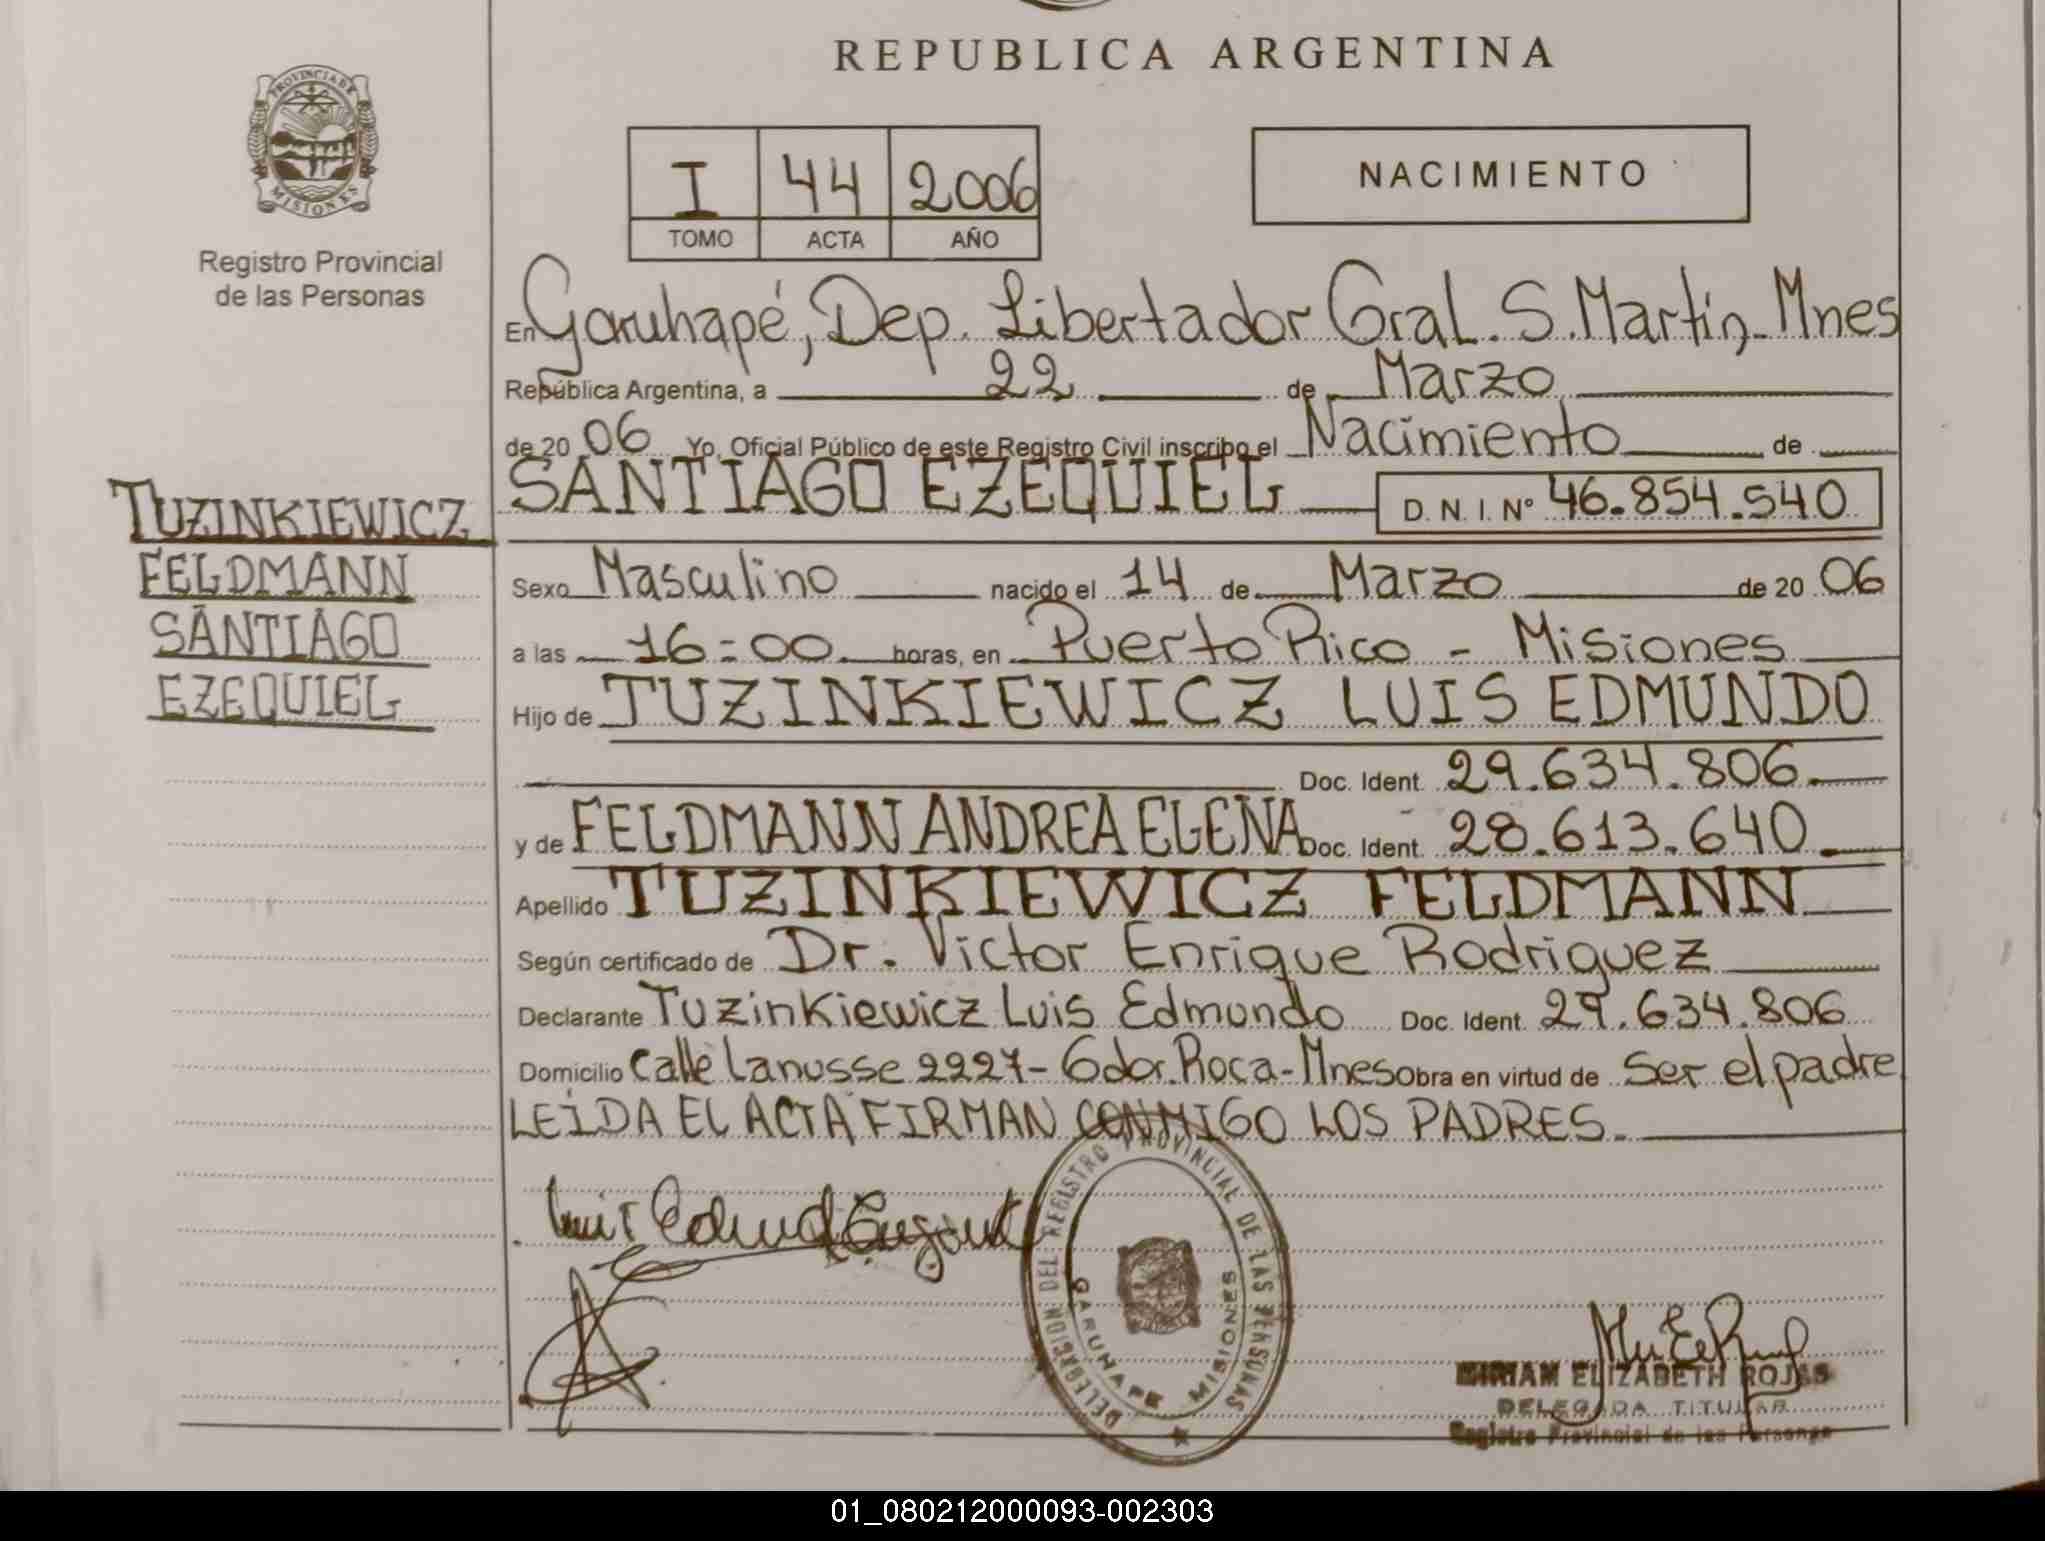 REPUBLICA ARGENTINA
PROVINCIA DE
MISIONES
Registro Provincial
de las Personas
I 44 2006
TOMO ACTA AÑO
NACIMIENTO
En Garuhapé, Dep. Libertador Gral. S. Martín - Mnes
República Argentina, a 22 de Marzo
de 20 06 Yo, Oficial Público de este Registro Civil inscribo el Nacimiento de
SANTIAGO EZEQUIEL D. N. I. Nº 46.854.540
TUZINKIEWICZ
FELDMANN
SANTIAGO
EZEQUIEL
Sexo Masculino nacido el 14 de Marzo de 20 06
a las 16:00 horas, en Puerto Rico - Misiones
Hijo de TUZINKIEWICZ LUIS EDMUNDO
Doc. Ident. 29.634.806.
y de FELDMANN ANDREA ELENA Doc. Ident. 28.613.640.
Apellido TUZINKIEWICZ FELDMANN
Según certificado de Dr. Victor Enrique Rodriguez
Declarante Tuzinkiewicz Luis Edmundo Doc. Ident. 29.634.806
Domicilio Calle Lanusse 2227 - Gdor. Roca - Mnes Obra en virtud de Ser el padre
LEIDA EL ACTA FIRMAN CONMIGO LOS PADRES.
DELEGACION DEL REGISTRO PROVINCIAL DE LAS PERSONAS
GARUHAPE MISIONES
MIRIAM ELIZABETH ROJAS
DELEGADA TITULAR
Registro Provincial de las Personas
01_080212000093-002303